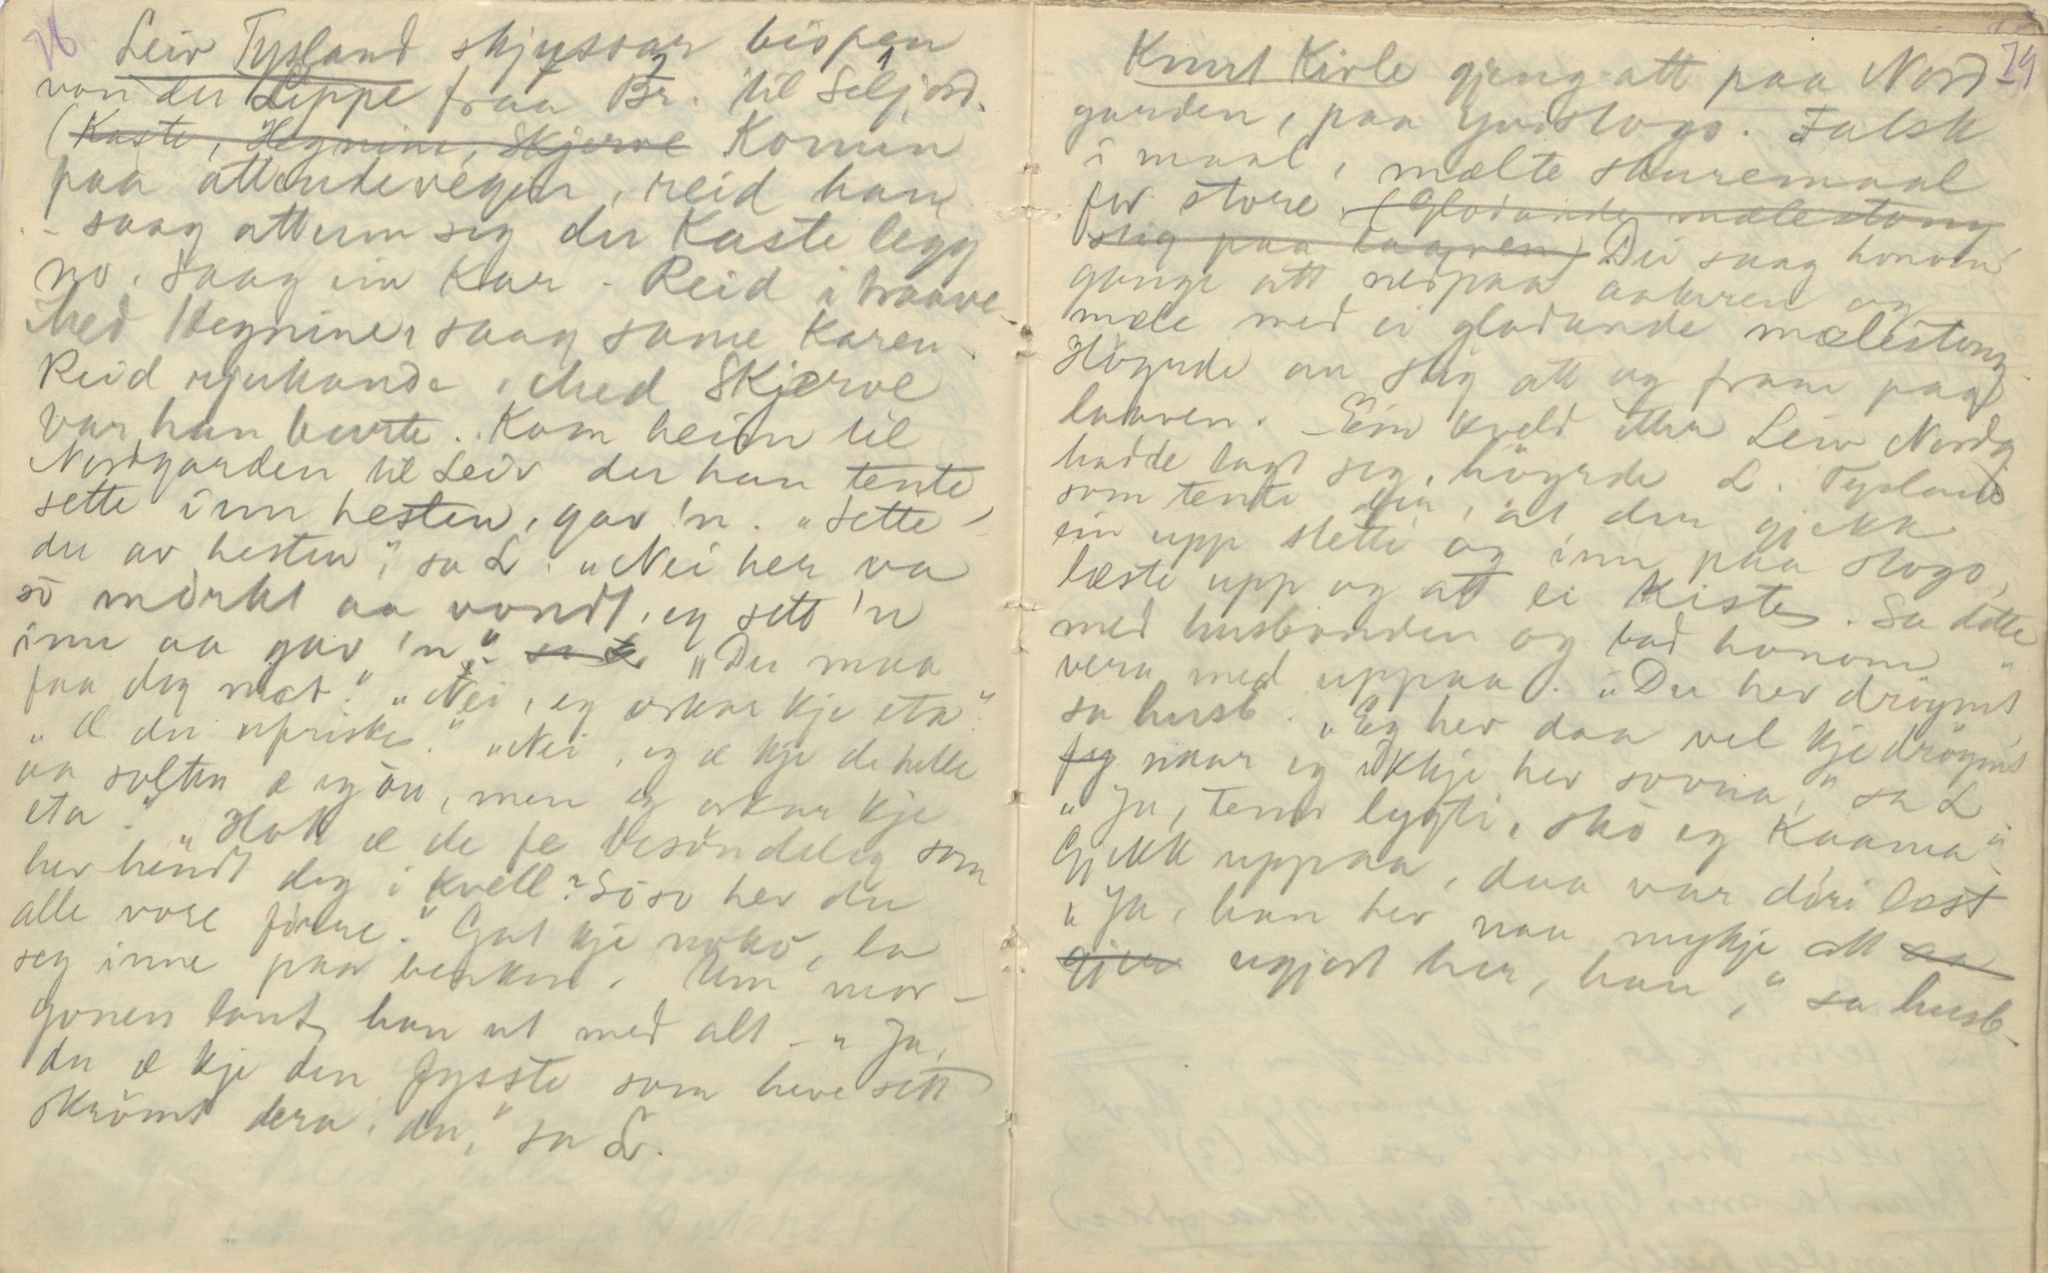 26
Leiv Tysland skjussar bispen
von der Lippe fraa Br. til Seljord.
2 1
(Kaste, Hegnine, Skjerve Komen
paa attendevegen, reid han,
- saag attum seg der Kaste legg
no. saag ein Kar - Reid i traave -
Med Hegnine, saag same Karen.
Reid rjukande, Med Skjerve
var han burte. Kom heim til
Nordgarden til Leiv der han tente
sette inn hesten, gav 'n. "Sette
du av hesten," sa L. "Nei her va
so mörkt aa vondt, eg sett 'n
inn aa gav 'n." sa L. "Du maa
faa deg mat." "Nei, eg orkar kje eta."
"Æ du ufriske." "Nei, eg æ kje de helle
aa solten æ eg òu, men eg orkar kje
eta." "Hok æ de fe besöndeleg som
her hendt deg i kvell? So so her du
alle vore förre." Gat kje noko, la
seg inne paa benken. Um mor-
gonen tont han ut med alt - "Ja,
du æ kje den fysste som heve sett
skrömt dera, du," sa L.
29
Knut Kivle gjeng att paa Nord-
garden, paa Gvistogo. Falsk
i maal, mælte skuremaal
for store. (Glodande mælestong
steig paa laaven) Dei saag honom
gange att nedpaa aakeren og
mæle med ei glodande mælestong.
Höyrde an steig att og fram paa
laaven. - Ein kveld etter Leiv Nordg
hadde lagt seg, höyrde L. Tysland
som tente der, at der gjekk
ein upp stetti og inn paa stogo,
læste upp og att ei Kiste. Sa dette
med husbonden og bad honom
vera med uppaa. "Du hev dröymt,"
sa husb. "Eg hev daa vel kje dröymt
Jeg naar eg ikkje hev sovna," sa L
"Ja, tend lygti, sko eg Kaama"
Gjekk uppaa, daa var döri læst
"Ja, han hev naa mykje att aa
gjera ugjort her, han," sa husb.